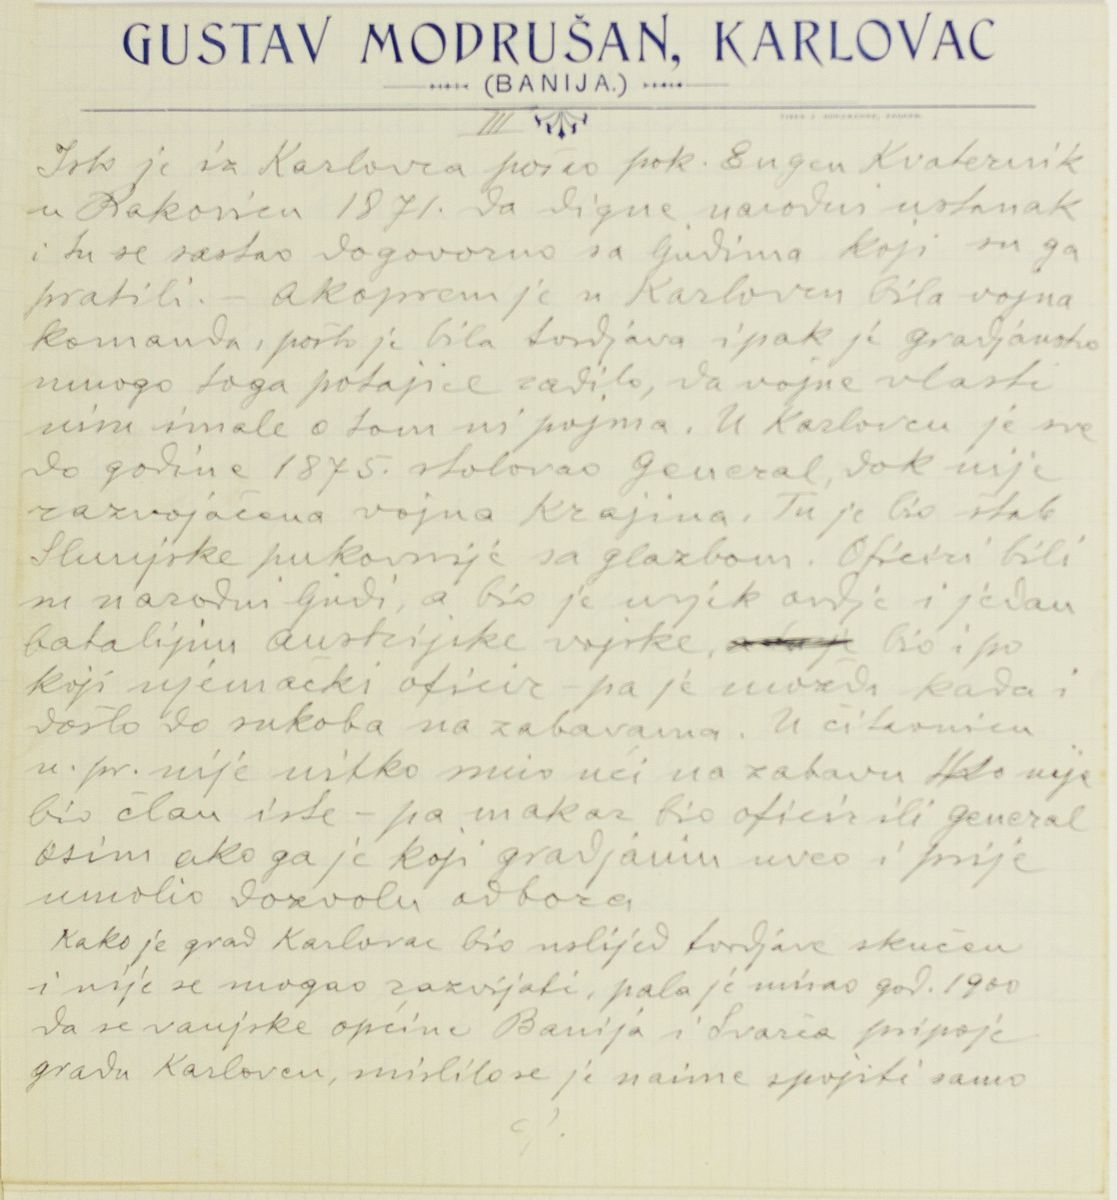 GUSTAV MODRUŠAN, KARLOVAC
(BANIJA.)
III
Isto je iz Karlovca pošao pok. Eugen Kvaternik
u Rakovicu 1871. da digne narodni ustanak
i tu se sastao dogovorno sa ljudima koji su ga
pratili. – Akoprem je u Karlovcu bila vojna
komanda, pošto je bila tvrdjava ipak je gradjanstvo
mnogo toga potajice radilo, da vojne vlasti
nisu imale o tom ni pojma. U Karlovcu je sve
do godine 1875. stolovao General, dok nije
razvojačena vojna Krajina. Tu je bio štab
Slunjske pukovnije sa glazbom. Oficiri bili
su narodni ljudi, a bio je uvjek ovdje i jedan
batalijun austrijske vojske, bio i po
koji njemački oficir – pa je možda kada i
došlo do sukoba na zabavama. U čitaonicu
n. pr. nije nitko smio ući na zabavu tko nije
bio član iste – pa makar bio oficir ili general
osim ako ga je koji gradjanin uveo i prije
umolio dozvolu odbora
Kako je grad Karlovac bio uslijed tvrdjave skučen
i nije se mogao razvijati, pala je misao god. 1900
da se vanjske općine Banija i Švarča pripoje
gradu Karlovcu, mislilo se je naime spojiti samo